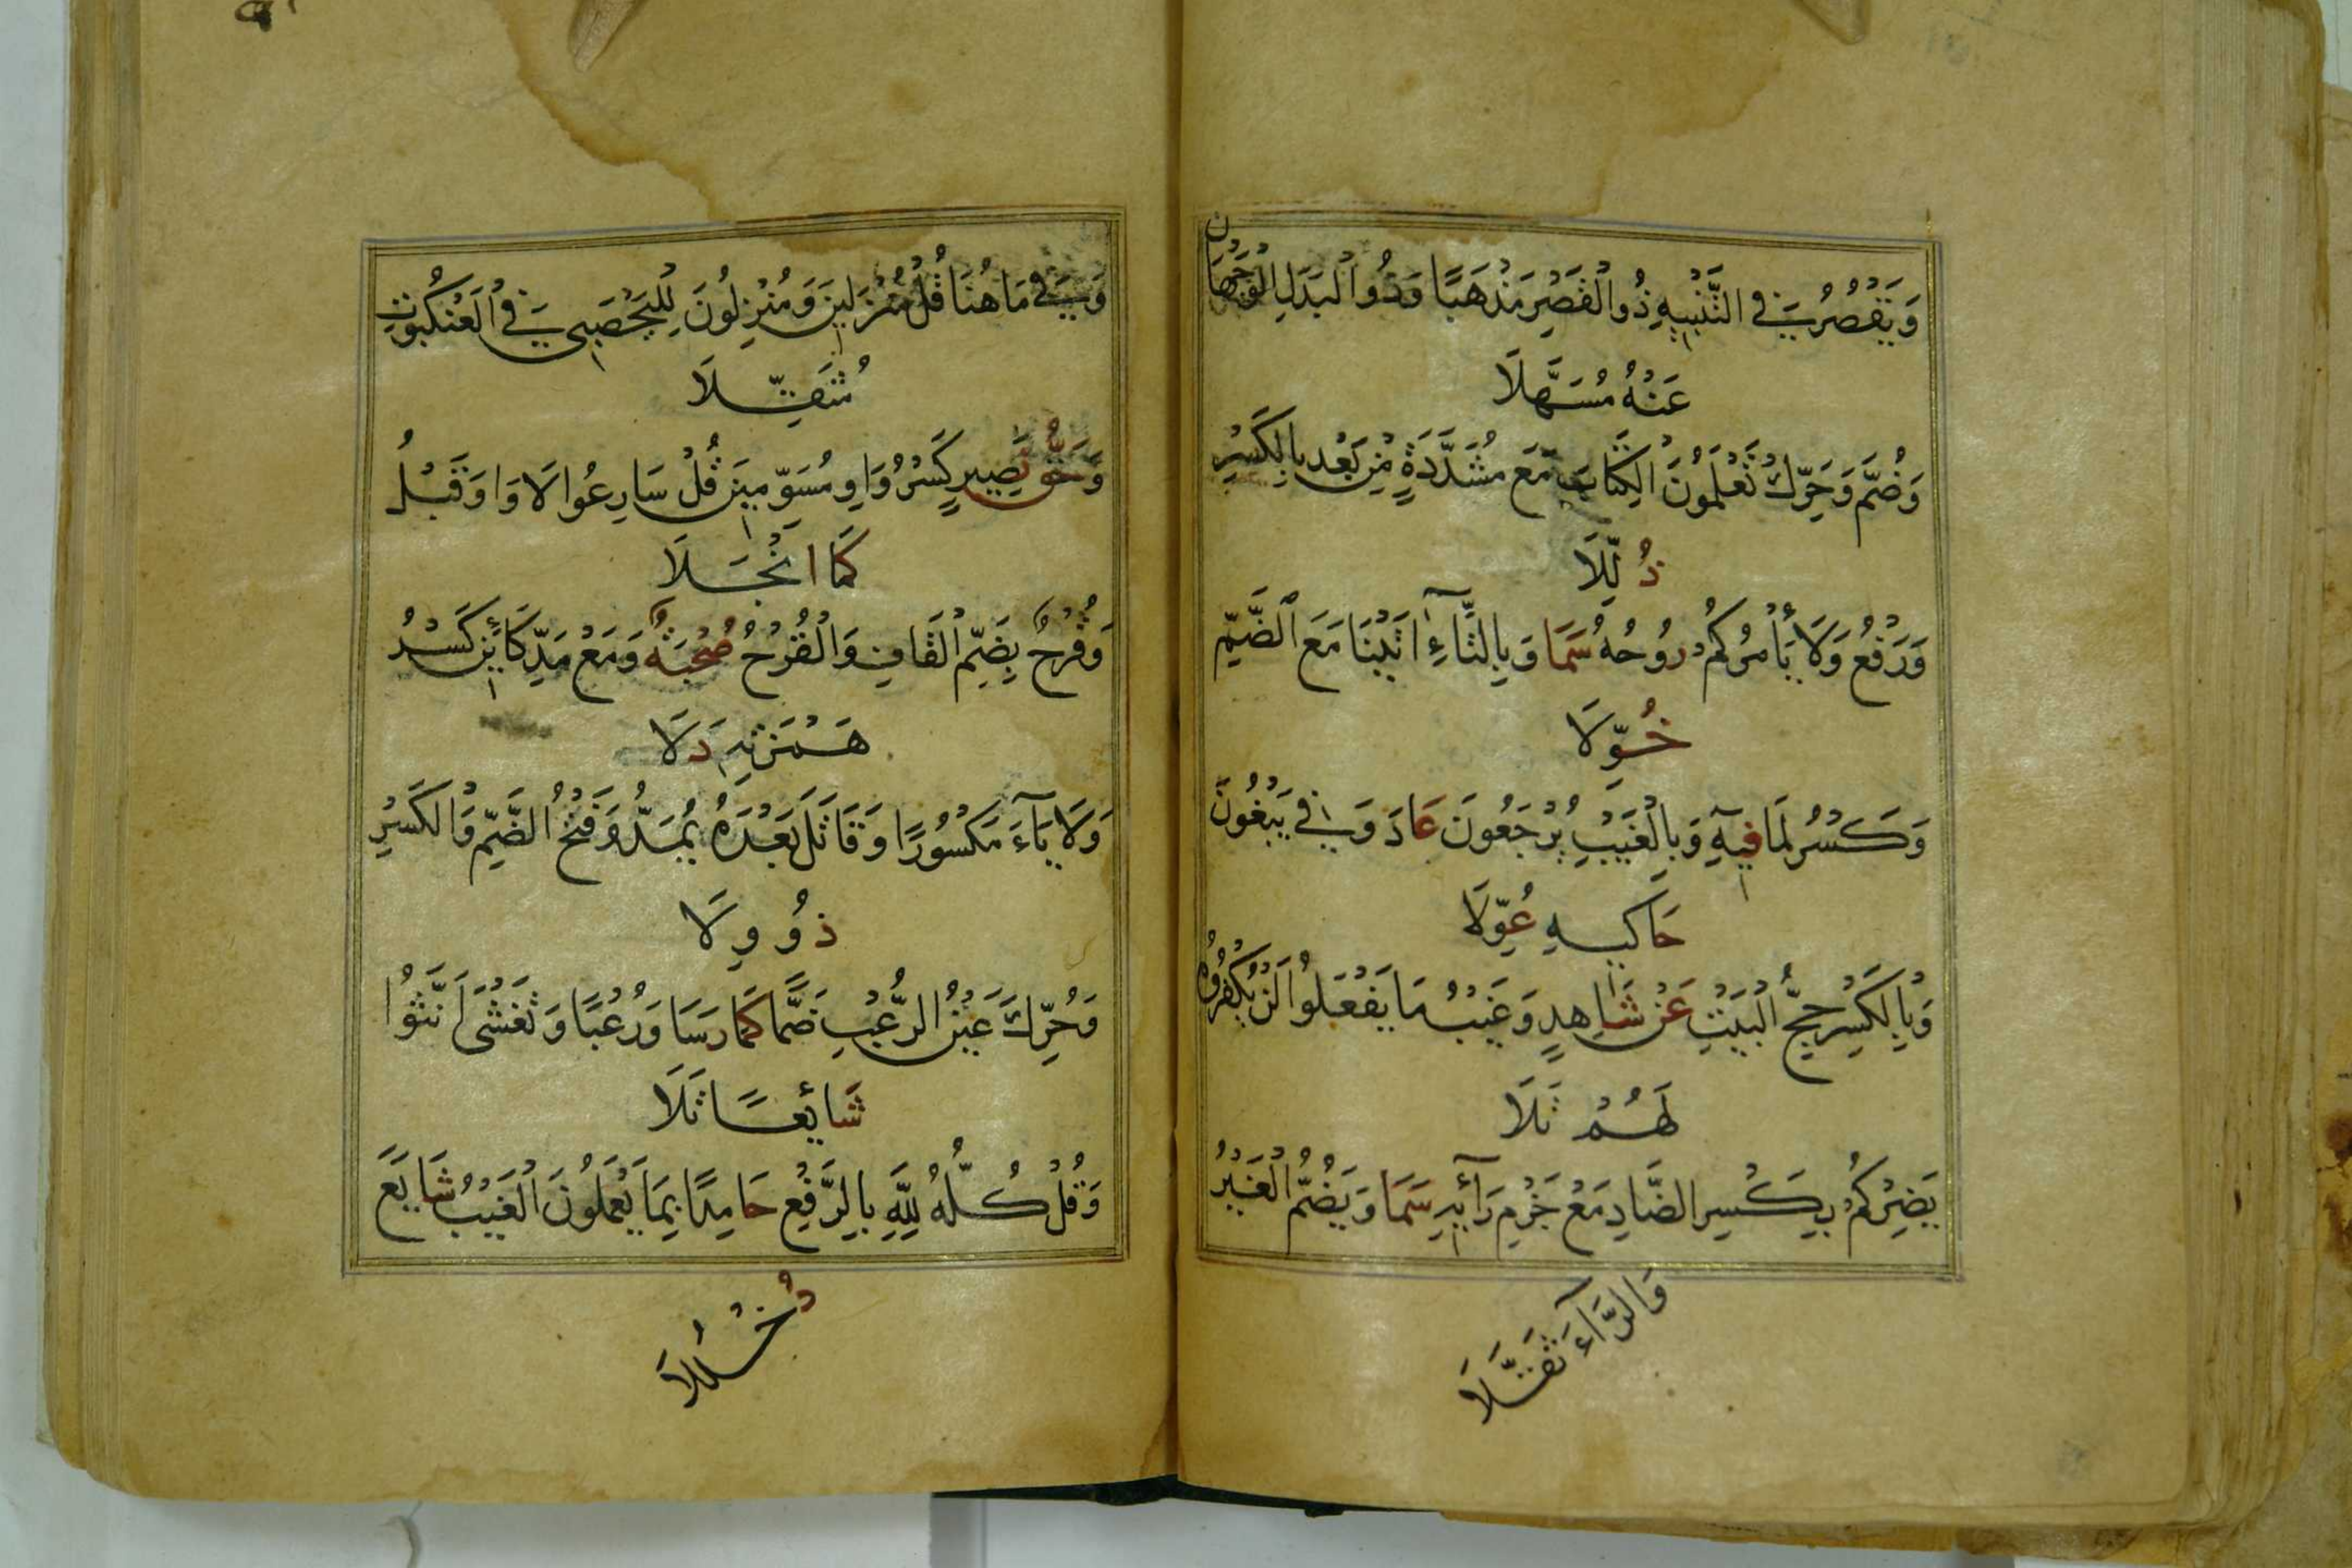 وَيَقْصُرُ فِي التَّنْبِيهِ ذُو الْقَصْرِ مَذْهَبًا وَذُو الْبَدَلِ الْوَجْهَانِ
عَنْهُ مُسَهَّلَا
وَضُمَّ وَحَرِّكْ تَعْلَمُونَ الْكِتَابَ مَعَ مُشَدَّدَةٍ مِنْ بَعْدُ بِالْكَسْرِ
ذُلِّلَا
وَرَفْعُ وَلَا يَأْمُرْكُمُ رُوحُهُ سَمَا وَبِالتَّاءِ آتَيْنَا مَعَ الضَّمِّ
خُوِّلَا
وَكَسْرُ لَمَا فِيهِ وَبِالْغَيْبِ يُرْجَعُونَ عَادَ وَفِي يَبْغُونَ
حَاكِيهِ عُوِّلَا
وَبِالْكَسْرِ حِجُّ الْبَيْتِ عَنْ شَاهِدٍ وَغَيْبُ مَا يَفْعَلُوا لَنْ يُكْفَرُوهُ
لَهُمْ تَلَا
يَضِرْكُمْ بِكَسْرِ الضَّادِ مَعْ جَزْمِ رَائِهِ سَمَا وَيَضُمُّ الْغَيْرُ
وَالرَّاءَ ثَقَّلَا
وَفِي مَا هُنَا قُلْ مُنْزَلِينَ وَمُنْزِلُونَ لِلْيَحْصَبِي فِي الْعَنْكَبُوتِ
مُثَقِّلَا
وَحَقُّ نَصِيرٍ كَسْرُ وَاوِ مُسَوِّمِينَ قُلْ سَارِعُوا لَا وَاوَ قَبْلُ
كَمَا انْجَلَا
وَقُرْحٌ بِضَمِّ الْقَافِ وَالْقُرْحُ صُحْبَةٌ وَمَعْ مَدِّ كَائِنْ كَسْرُ
هَمْزَتِهِ دَلَا
وَلَا يَاءَ مَكْسُورًا وَقَاتَلَ بَعْدَهُ يُمَدُّ وَفَتْحُ الضَّمِّ وَالْكَسْرِ
ذُو وِلَا
وَحُرِّكَ عَيْنُ الرُّعْبِ ضَمًّا كَمَا رَسَا وَرُعْبًا وَتَغْشَى أَنَّثُوا
شَائِعًا تَلَا
وَقُلْ كُلُّهُ لِلَّهِ بِالرَّفْعِ حَامِدًا بِمَا يَعْمَلُونَ الْغَيْبُ شَايَعَ
دُخْلُلَا